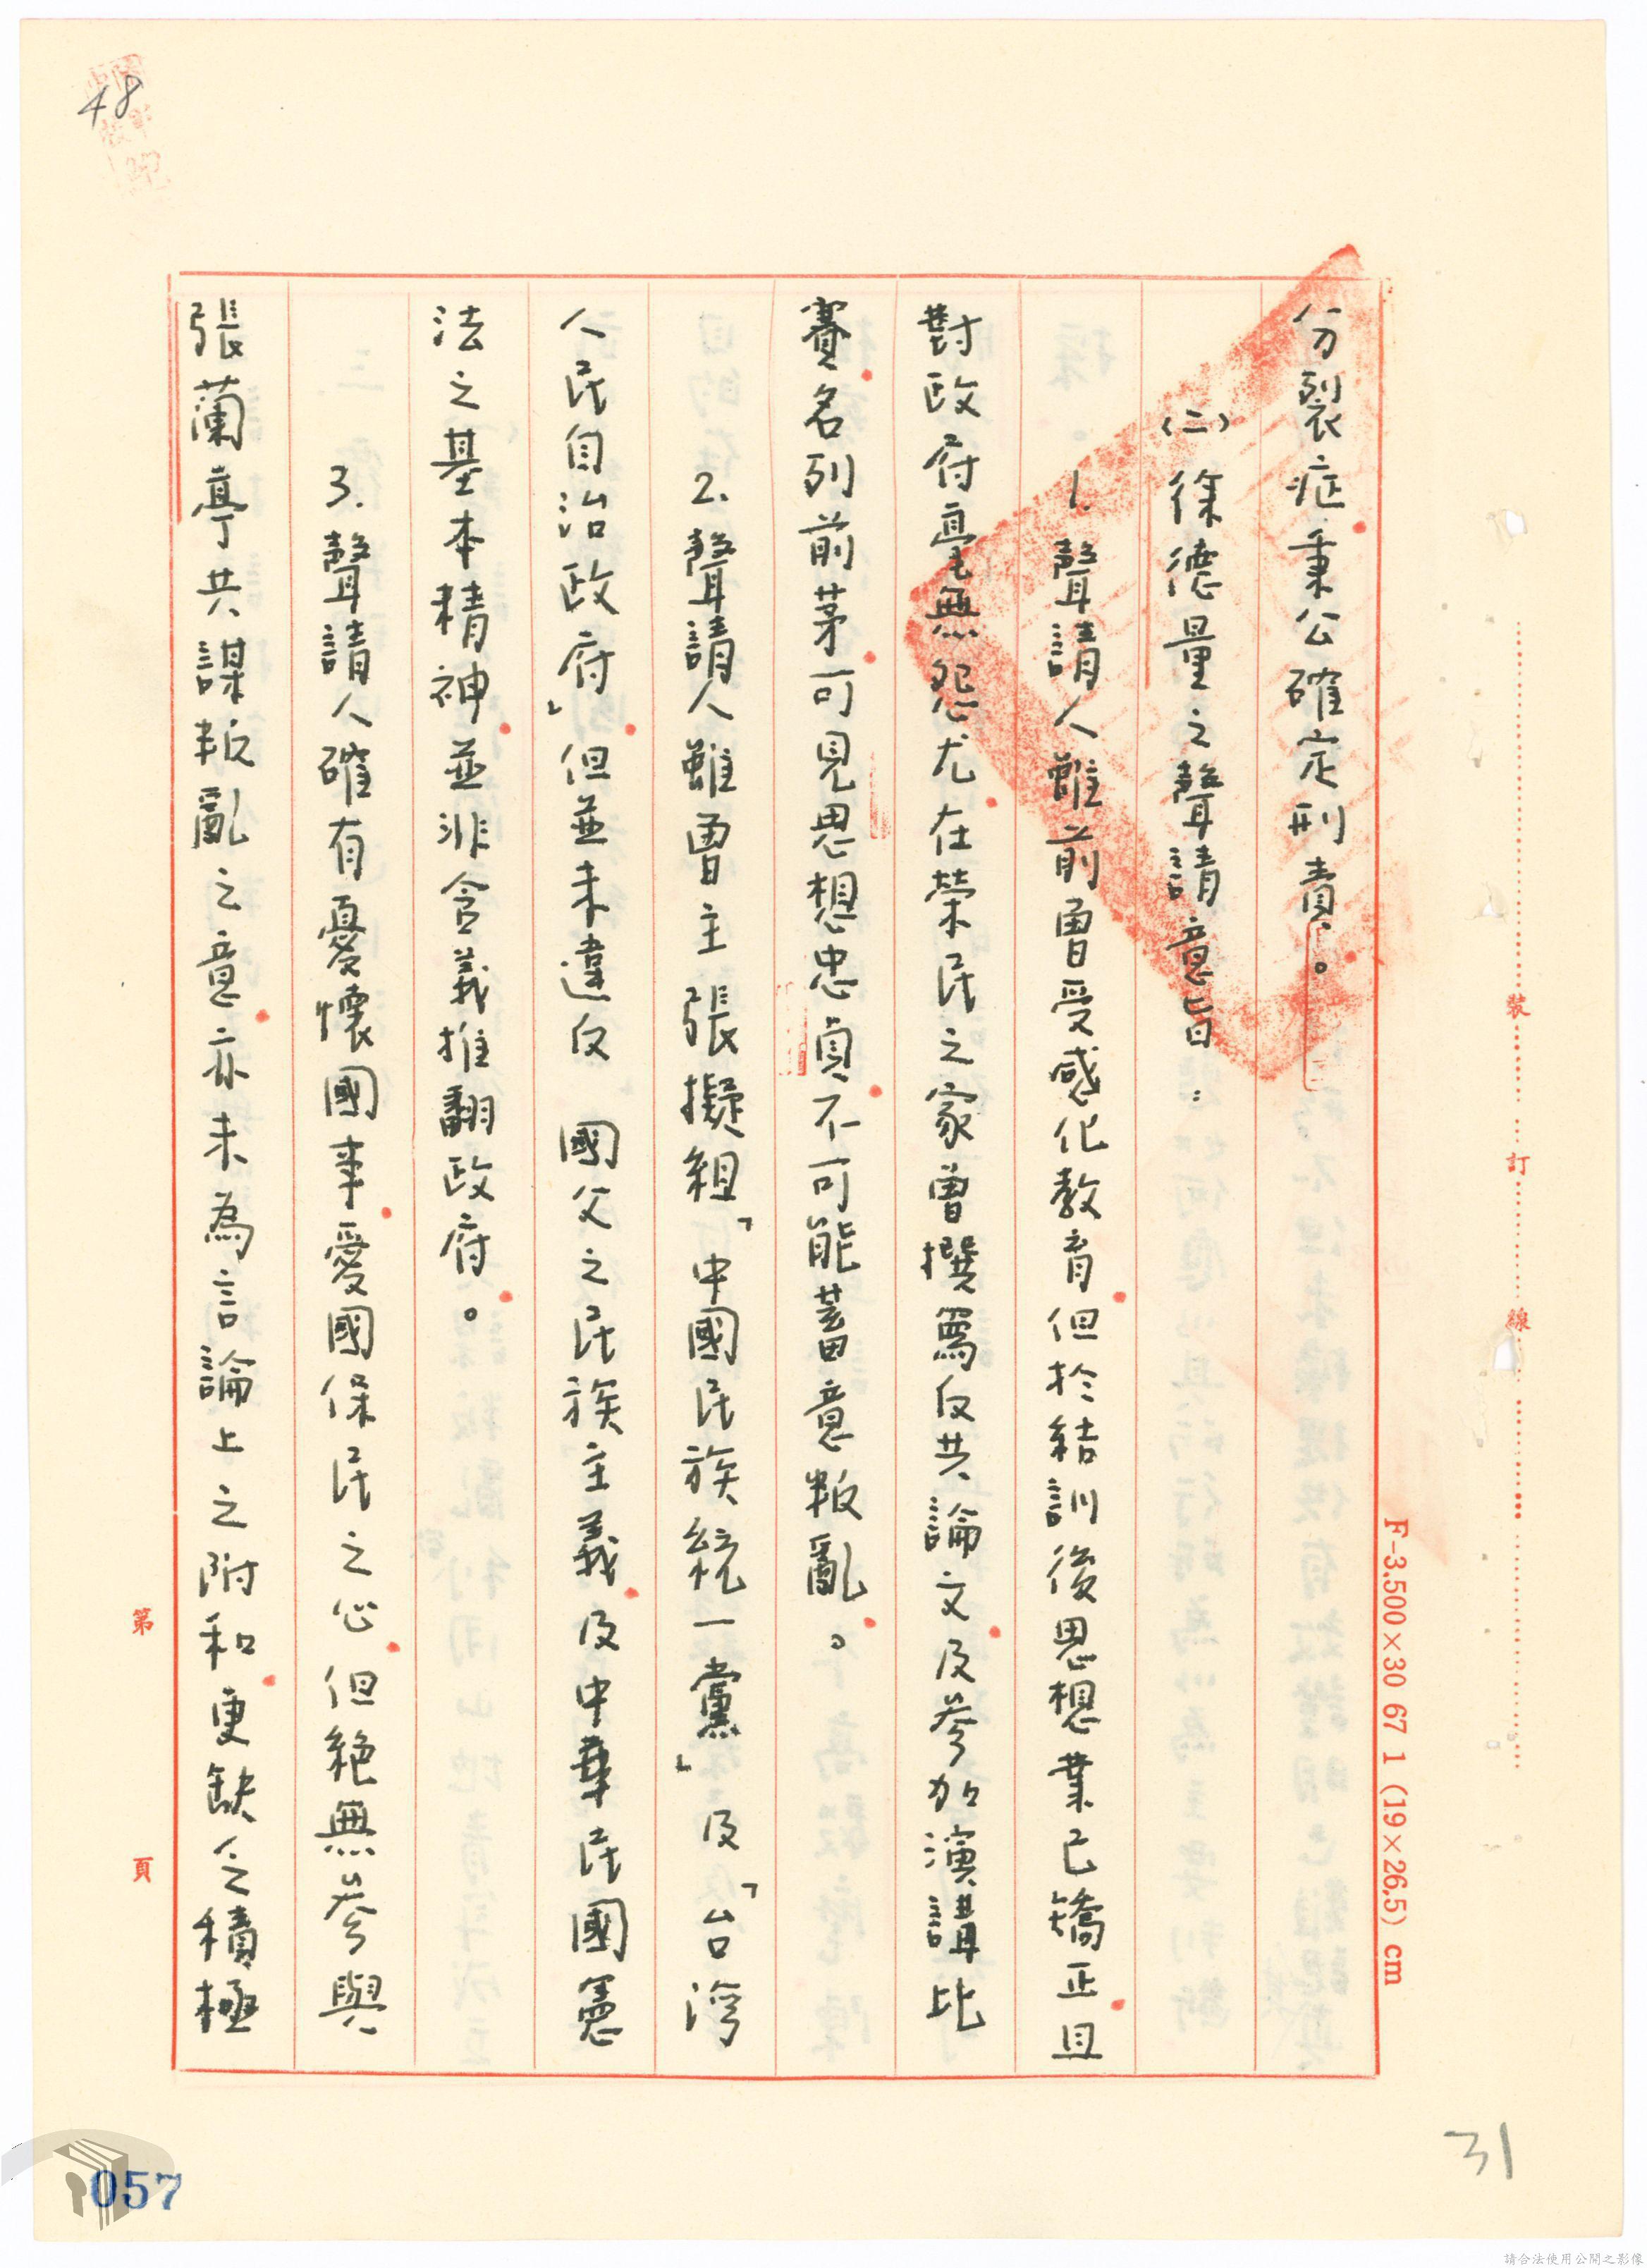 48
分裂症秉公確定刑責。
(二)徐德量之聲請意旨：
1.聲請人雖前曾受感化教育但於結訓後思想業已矯正且
對政府毫無怨尤在榮民之家曾撰寫反共論文及參加演講比
賽名列前茅可見思想忠貞不可能蓄意叛亂。
2.聲請人雖曾主張擬組「中國民族統一黨」及「台灣
人民自治政府」但並未違反 國父之民族主義及中華民國憲
法之基本精神並非含義推翻政府。
3.聲請人確有憂懷國事愛國保民之心但絕無參與
張蘭亭共謀叛亂之意亦未為言論上之附和更缺乏積極
裝 訂 線
F-3.500×30 67 1 (19×26.5) cm
第 頁
31
057
請合法使用公開之影像